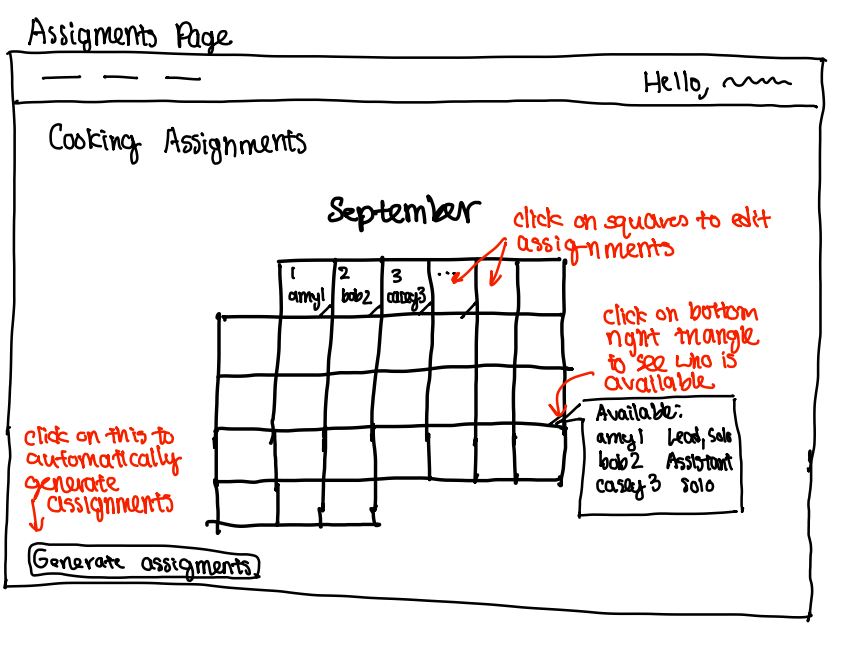 Assigments Page
Hello,
Cooking Assignments
September
click on squares to edit
assignments
1
2
3
...
amy1
bob2
casey3
click on bottom
right triangle
to see who is
available
Available:
amy1 Lead, Solo
bob2 Assistant
casey3 Solo
click on this to
automatically
generate
assignments
Generate assigments